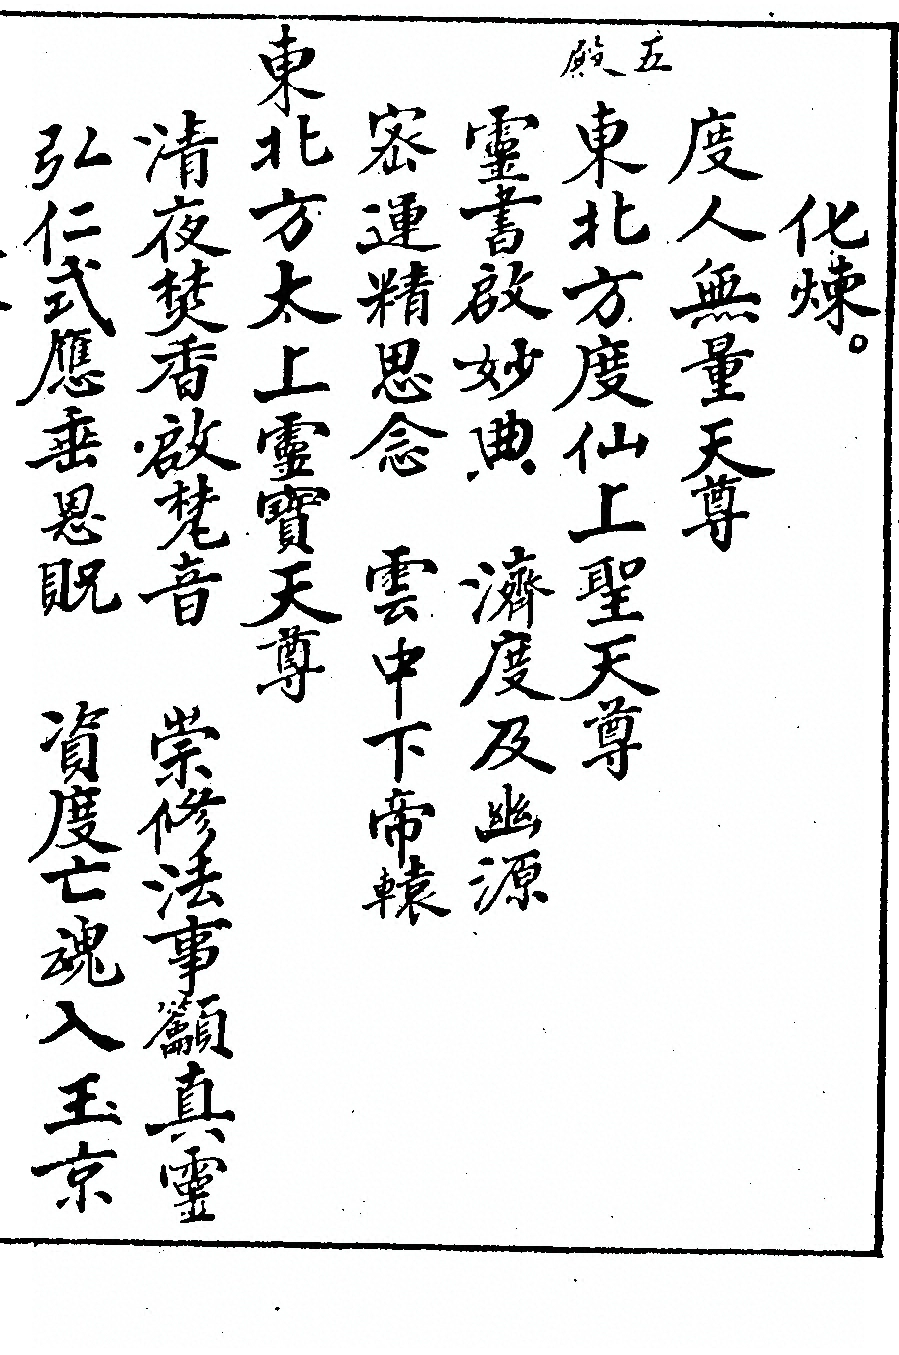 化煉。
度人無量天尊
五殿
東北方度仙上聖天尊
靈書啟妙典　濟度及幽源
密運精思念　雲中下帝轅
東北方太上靈寶天尊
清夜焚香啟梵音　崇修法事籲真靈
弘仁式應垂恩貺　資度亡魂入玉京